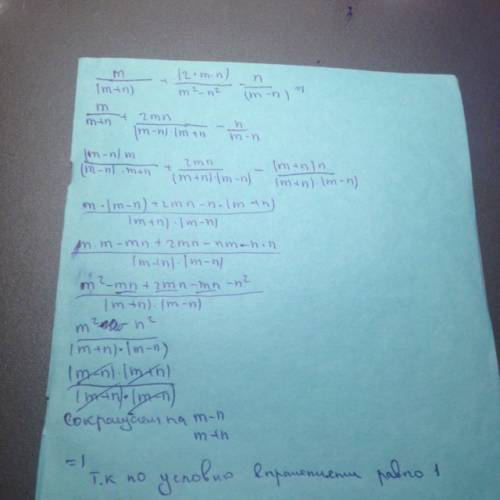 m/(m+n) + (2·m·n)/(m²-n²) - n/(m-n) =
m/(m+n) + 2mn/(m-n)(m+n - n/(m-n)
(m-n)m/(m-n)·m+n + 2mn/(m+n)·(m-n) - (m+n)n/(m+n)·(m-n)
m·(m-n)+2mn-n·(m+n)/(m+n)·(m-n)
m·m-mn+2mn-nm-n·n/(m+n)·(m-n)
m²-mn+2mn-mn-n²/(m+n)·(m-n)
m²-n²/(m+n)·(m-n)
(m-n)·(m+n)/(m+n)·(m-n)
сокращаем на m-n
m+n
=1
т.к по условию равно 1